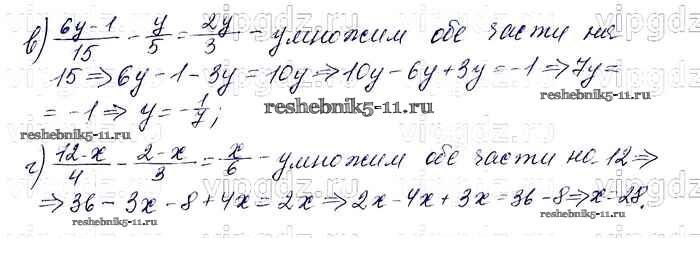 в) (6y-1)/15 - y/5 = 2y/3 - умножим обе части на
15 ⇒ 6y - 1 - 3y = 10y ⇒ 10y - 6y + 3y = -1 ⇒ 7y =
= -1 ⇒ y = -1/7;
reshebnik5-11.ru
reshebnik5-11.ru
reshebnik5-11.ru
г) (12-x)/4 - (2-x)/3 = x/6 - умножим обе части на 12 ⇒
⇒ 36 - 3x - 8 + 4x = 2x ⇒ 2x - 4x + 3x = 36 - 8 ⇒ x = 28.
reshebnik5-11.ru
reshebnik5-11.ru